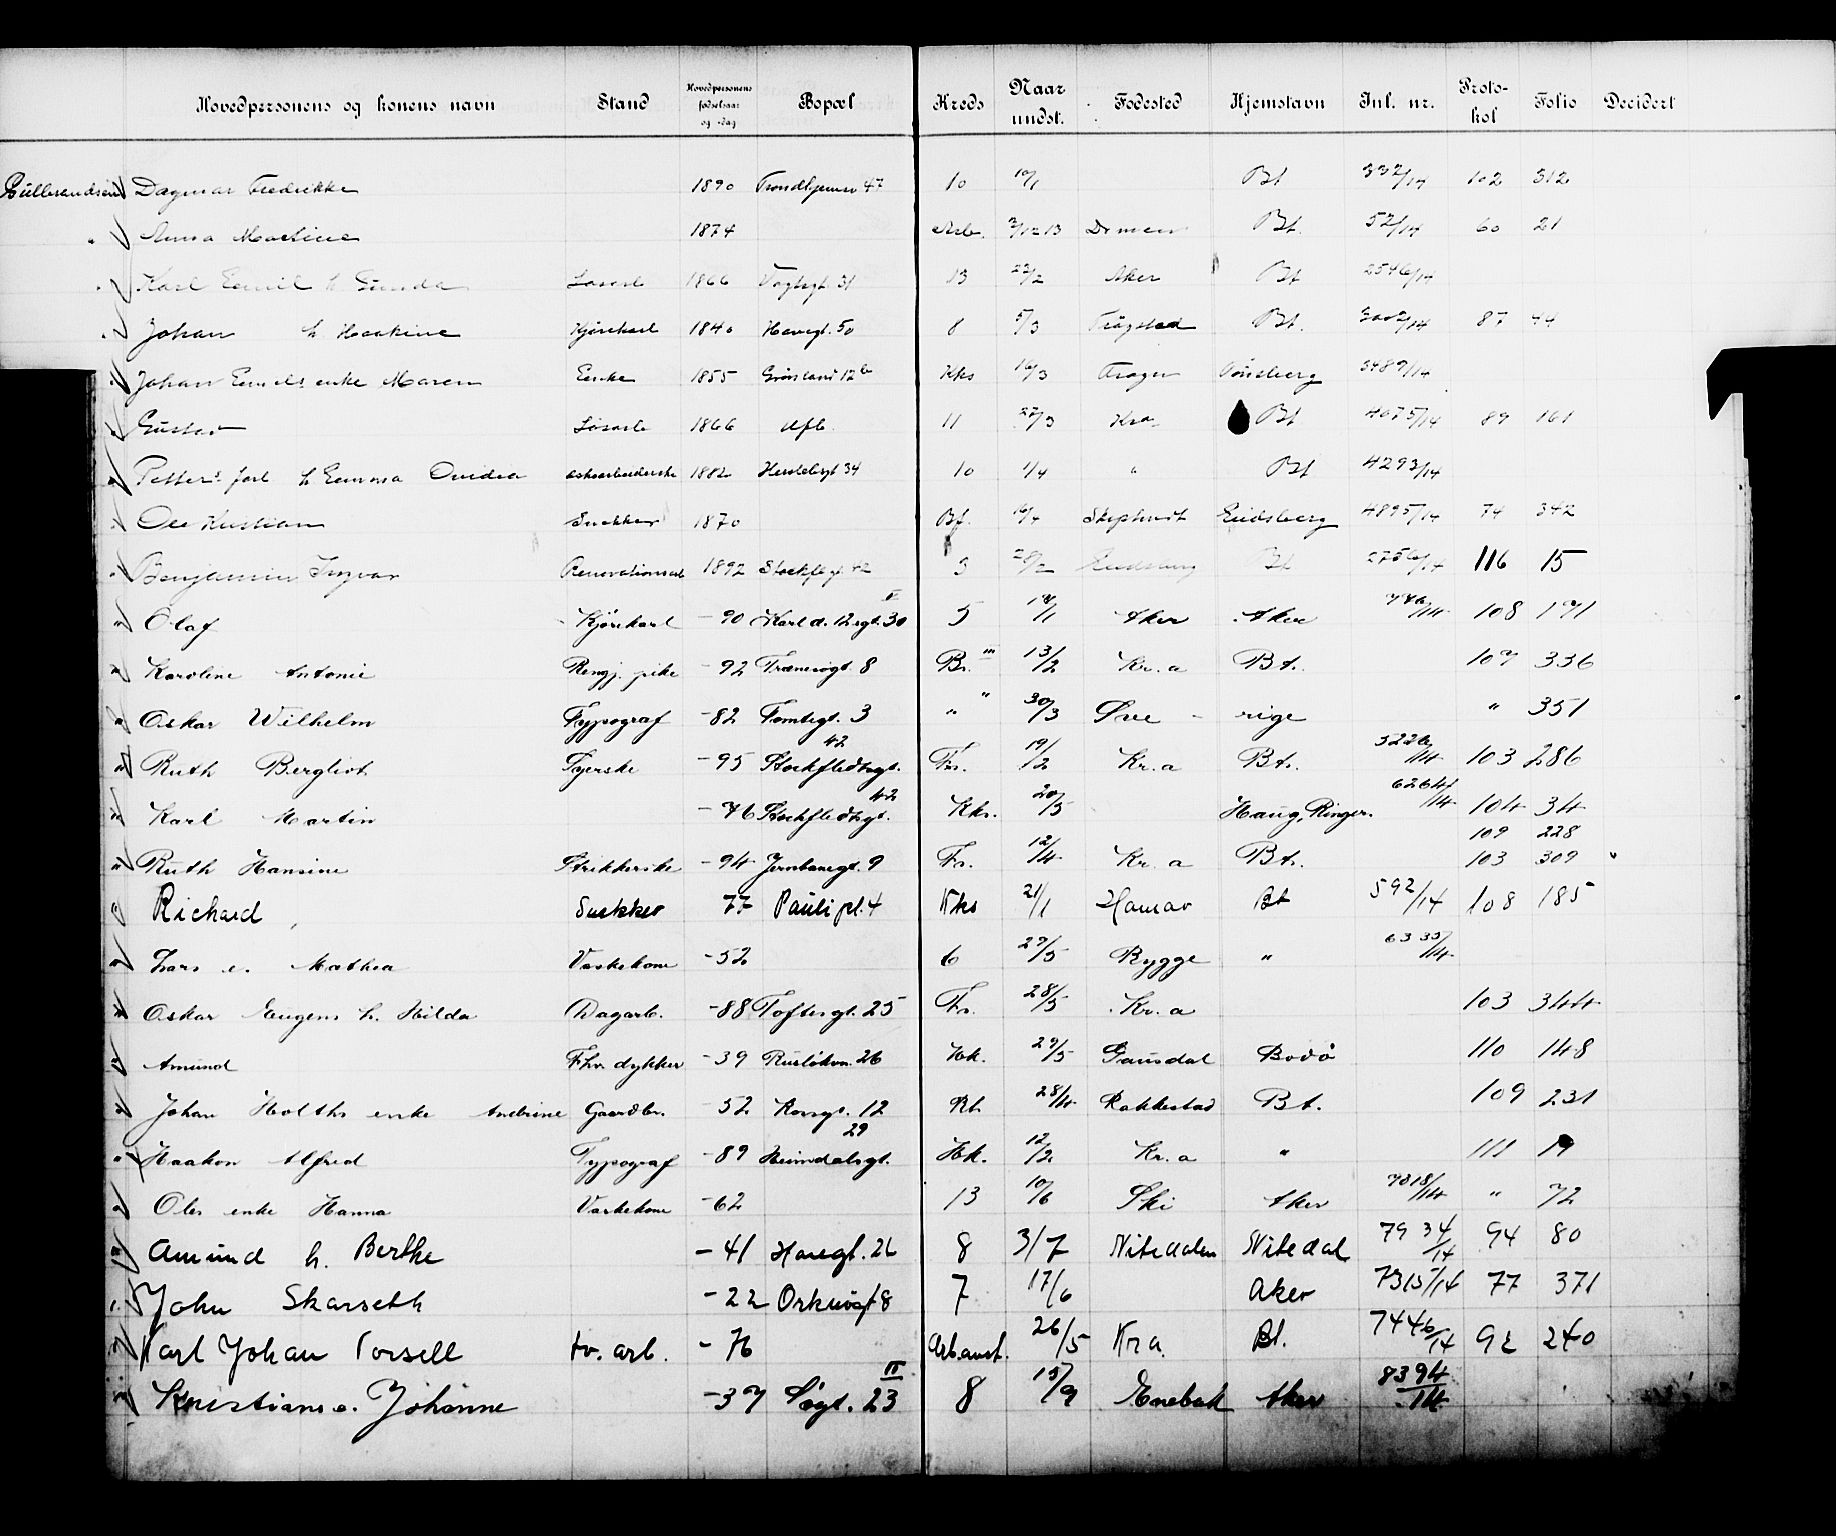 Hovedpersonens og konens navn Stand Hovedpersonens fødselsaar og -dag Bopæl Kreds Naar undst. Fødested Hjemstavn Inl. nr. Protokol Folio Decidert
Gulbrandsen Dagmar Fredrikke 1890 Trondhjemsv 47 10 10/1 Bt 332/14 102 312
" Anna Martine 1874 Arb. 3/12 13 Drammen Bt. 52/14 60 21
" Karl Emil h Gunda Løsarb 1866 Vogtsgt 31 13 23/2 Aker Bt 2546/14
" Johan h. Haakine Kjørekarl 1840 Havegt. 50 8 5/3 Trøgstad Bt. 3002/14 87 44
" Johan Emils enke Maren Enke 1855 Grønland 12b Kks 16/3 Frogn Tønsberg 3489/14
" Gustav Løsarb 1866 Afb. 11 27/3 Kra. Bt 4075/14 89 161
" Petters forl h Emma Ovidia askearbeiderske 1882 Herslebsgt 34 10 1/4 " Bt 4293/14
" Ole Kristian Snekker 1870 Bf. 16/4 Skiptvedt Eidsberg 4895/14 74 342
" Benjamin Ingvar Renovationsarb 1892 Stockfl. gt. 42 3 28/2 Eidsberg Bt 2756/14 116 15
" Olaf Kjørekarl -90 Karl d. 12. sgt. 30 II 5 14/1 Aker Aker 746/14 108 171
" Karoline Antonie Rengj. pike -92 Trænesøgt. 8 Br. III 13/2 Kr.a Bt. 107 336
" Oskar Wilhelm Typograf -82 Tomtegt. 3 " " 30/3 Sve - rige " 351
" Ruth Bergliot Tjerske -95 Stockfledtsgt. 42 Fr. 19/2 Kr.a Bt. 5226/14 103 286
" Karl Martin -76 Stockfledtsgt. 42 Kks. 20/5 Haug, Ringer. 6264/14 104 34
" Ruth Hansine Strikkerske -94 Jernbanegt. 9 Fr. 12/4 Kr.a Bt. 109 228 103 309 "
" Richard Snekker 77 Pauli pl. 4 Kks 21/1 Hamar Bt 592/14 108 185
" Lars e. Mathea Vaskekone -52 6 27/5 Rygge " 6335/14
" Oskar Eugens h. Hilda Dagarb. -88 Toftesgt. 25 Fr. 28/5 Kr.a 103 344
" Amund Fhv. dykker -39 Ruseløkvn. 26 Hk. 29/5 Gausdal Bodø 110 148
" Johan Holths enke Andrine Gaardbr. -52 Korsgt. 12 Rt. 28/4 Rakkestad Bt. 109 231
" Haakon Alfred Typograf -89 Heimdalsgt. 29 Hk. 12/2 Kr.a " 111 19
" Oles enke Hanna Vaskekone -62 13 10/6 Ski Aker 7018/14 " 72
" Amund h. Berthe -41 Havegt. 26 8 3/7 Nitedalen Nitedal 7934/14 94 80
" John Skarseth -22 Orknøgt 8 7 17/6 Aker 7315/14 77 371
" Karl Johan Torsell tv. arb. -76 Arb.anst. 26/5 Kra. Bt. 7446/14 92 240
" Kristians e. Johanne -37 Søgt. 23 II 8 15/9 Enebak Aker 8394/14